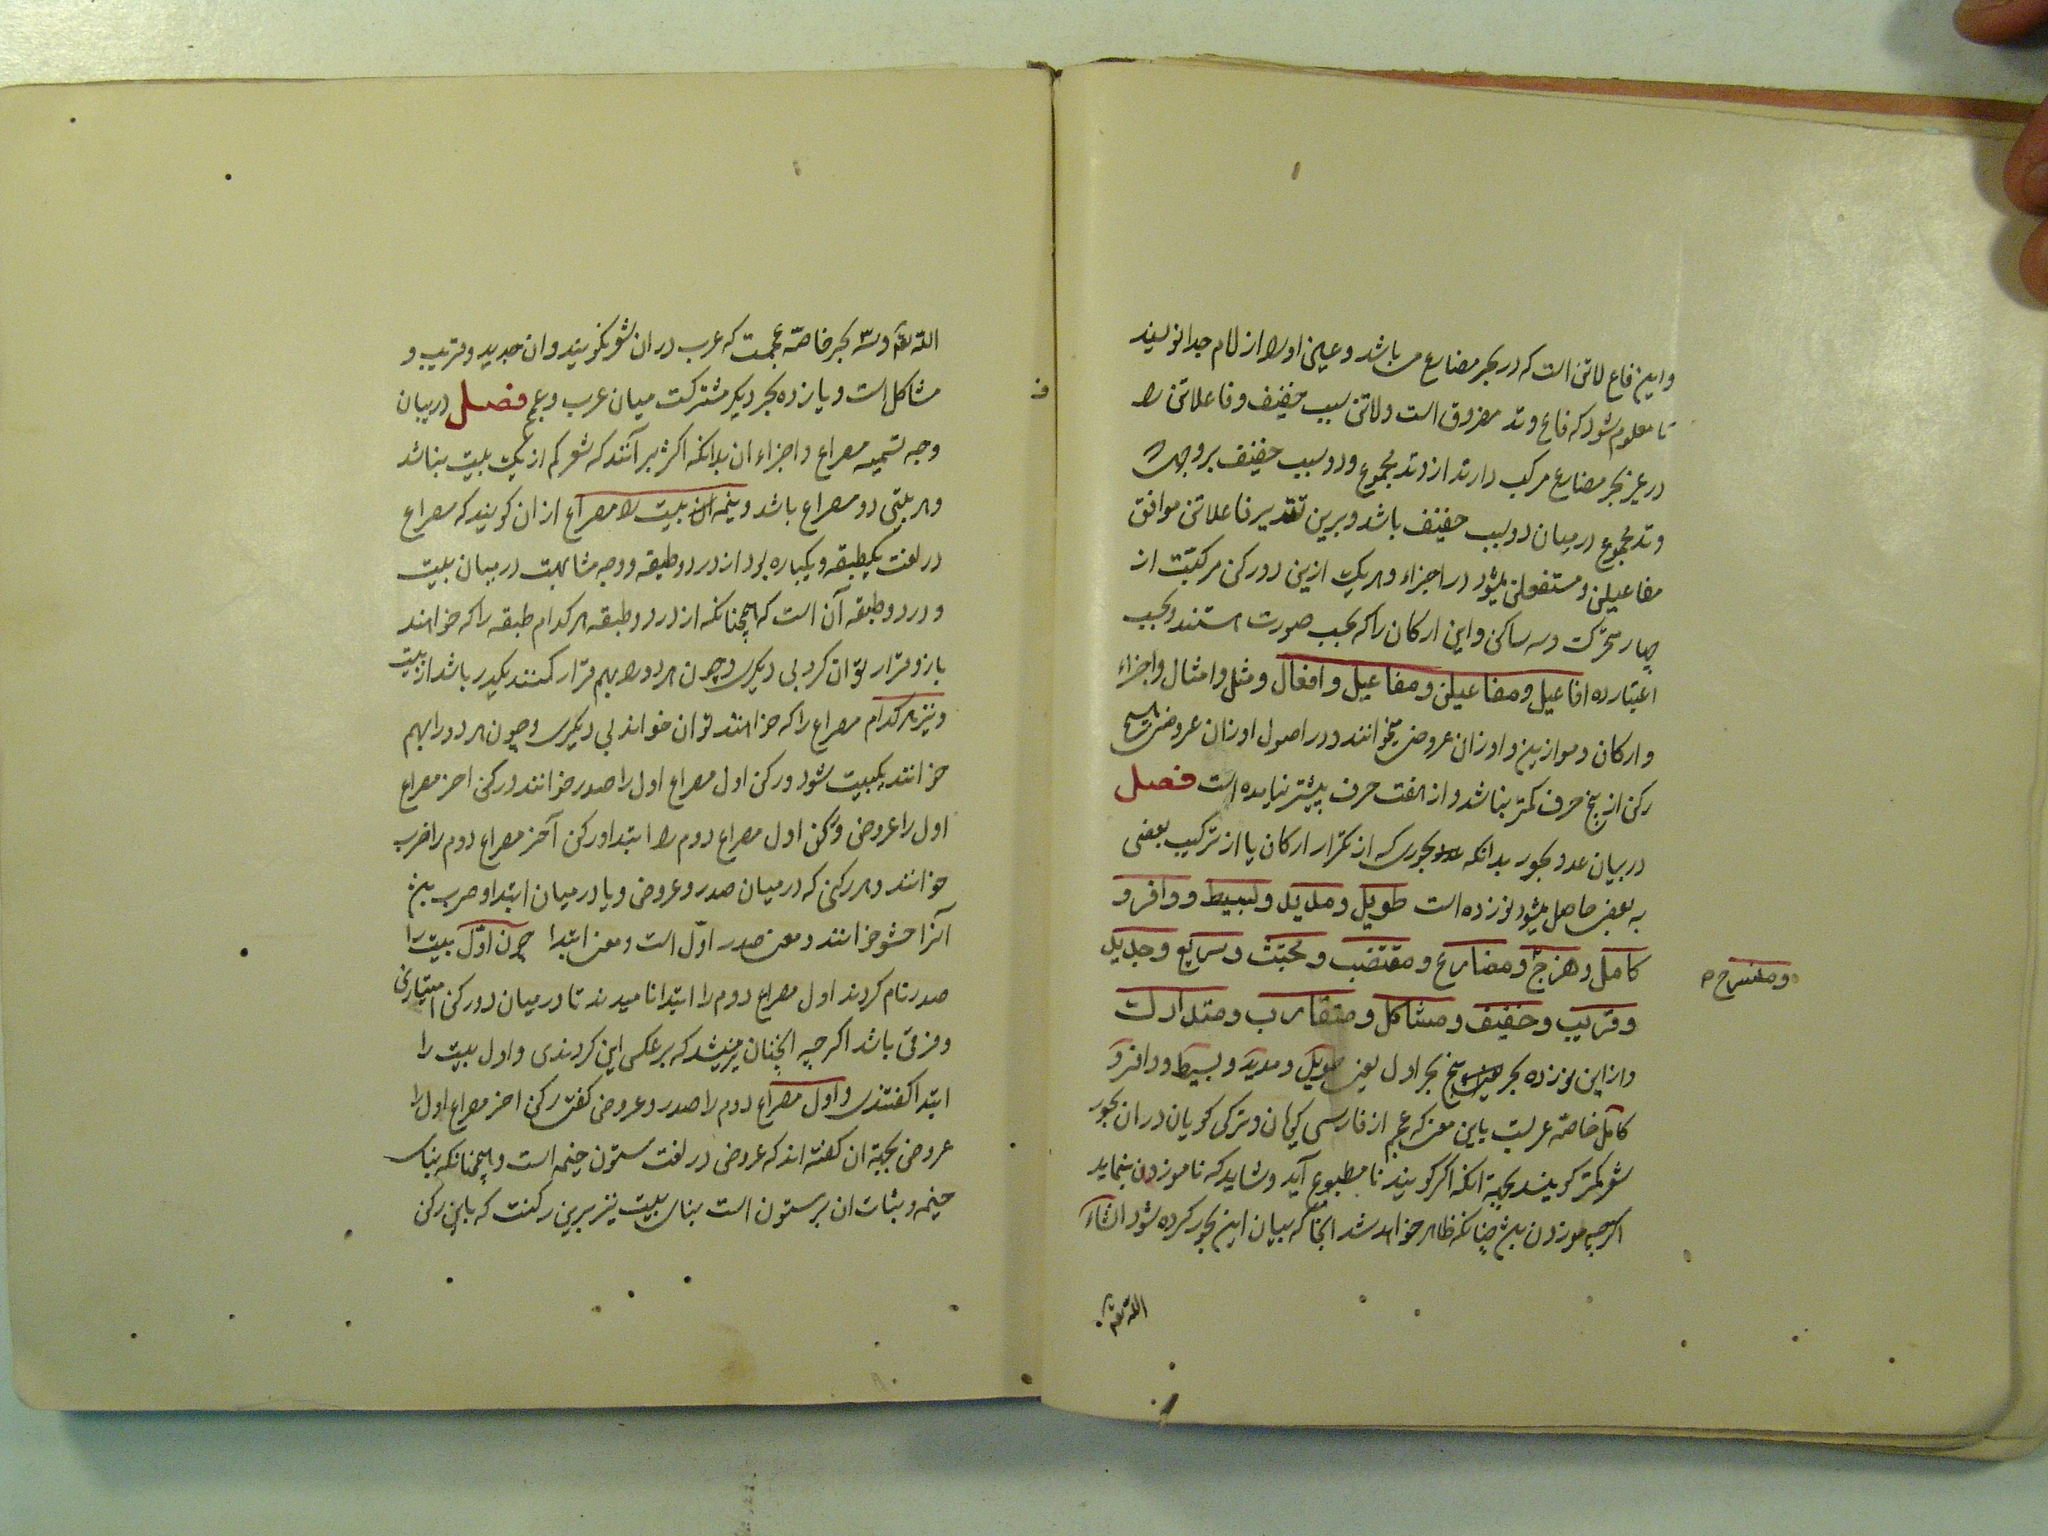 و این فاع لاتن است که در بحر مضارع می باشد و عین او را از لام جدا نویسند
تا معلوم شود که فاع وتد مفروق است و لاتن سبب خفیف و فاعلاتن را
در غیر بحر مضارع مرکب دارند از وتد مجموع و دو سبب خفیف بر وجهی که
وتد مجموع در میان دو سبب خفیف باشد و برین تقدیر فاعلاتن موافق
مفاعیلن و مستفعلن میشود در اجزاء و هر یک ازین دو رکن مرکبت از
چهار متحرکت و سه ساکن و این ارکان را که بحسب صورت هستند و بحسب
اعتبار ده افاعیل و مفاعیلن و مفاعیل و افعال و مثل و امثال و اجزاء
و ارکان و موازین و اوزان عروض میخوانند و در اصول اوزان عروض هیچ
رکن از پنج حرف کمتر نباشد و از هفت حرف بیشتر نیامده است فصل
در بیان عدد بحور بدانکه بحوری که از تکرار ارکان یا از ترکیب بعضی
به بعض حاصل میشود نوزده است طویل و مدید و بسیط و وافر و
کامل و هزج و مضارع و مقتضب و مجتث و سریع و جدید
و منسرح
و قریب و خفیف و مشاکل و متقارب و متدارک
و از این نوزده بحر پنج بحر اول یعنی طویل و مدید و بسیط و وافر و
کامل خاصه عربست باین معنی که عجم از فارسی گویان و ترکی گویان در ان بحور
شعر کمتر گویند بجهة انکه اگر گویند نا مطبوع آید و شاید که ناموزون بنماید
اگرچه موزون بود چنانکه ظاهر خواهد شد انجا که بیان این بحور کرده شود انشاء
الله تعم
الله تعم و سه بحر خاصه عجمست که عرب در ان شعر نگویند و ان جدید و قریب و
مشاکل است و یازده بحر دیگر مشترکت میان عرب و عجم فصل در بیان
ف
وجه تسمیه مصراع و اجزاء ان بدانکه اکثر بر آنند که شعر کم از یک بیت نباشد
و هر بیتی دو مصراع باشد و نیمه بیت را مصراع از ان گویند که مصراع
در لغت یکطبقه و یکباره بود از در دو طبقه و وجه مشابهت در میان بیت
و در دو طبقه آن است که همچنانکه از در دو طبقه هر کدام طبقه را که خواهند
باز و فراز توان کرد بی دیگری و چون هر دو را بهم فراز کنند یکدر باشد از بیت
و نیز هر کدام مصراع را که خواهند توان خواند بی دیگری و چون هر دو را بهم
خوانند یکبیت شود و رکن اول مصراع اول را صدر خوانند و رکن اخر مصراع
اول را عروض و رکن اول مصراع دوم را ابتدا و رکن آخر مصراع دوم را ضرب
خوانند و هر رکنی که در میان صدر و عروض و یا در میان ابتدا و ضرب
آنرا حشو خوانند و معنی صدر اول است و معنی ابتدا چون اول بیت را
صدر نام کردند اول مصراع دوم را ابتدا نامیدند تا در میان دو رکن امتیازی
و فرقی باشد اگرچه انچنان نیز میشد که بر عکس این کردندی و اول بیت را
ابتدا گفتندی و اول مصراع دوم را صدر و عروض گفتن رکن اخر مصراع اول را
عروض بجهة ان گفته اند که عروض در لغت ستون خیمه است و همچنانکه بنای
خیمه و ثبات ان بر ستون است بنای بیت نیز برین رکنست که باین رکن